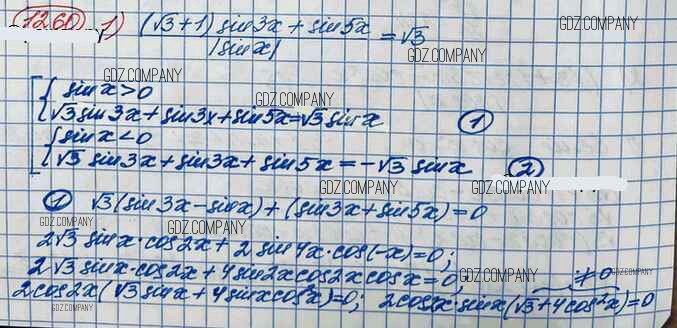 GDZ.COMPANY
1260 1) (√3+1) sin3x + sin5x / |sinx| = √3
GDZ.COMPANY
GDZ.COMPANY
GDZ.COMPANY
[ { sinx>0
GDZ.COMPANY
√3sin3x+sin3x+sin5x=√3sinx (1)
{ sinx<0
√3 sin3x+sin3x+sin5x=-√3 sinx (2)
GDZ.COMPANY GDZ.COMPANY
(1) √3(sin3x-sinx)+(sin3x+sin5x)=0
GDZ.COMPANY GDZ.COMPANY
2√3 sinx·cos2x+2sin4x·cos(-x)=0;
GDZ.COMPANY
2√3 sinx·cos2x+4sin2xcos2xcosx=0; ≠0
GDZ.COMPANY
2cos2x(√3sinx+4sinxcos²x)=0; 2cos2x·sinx(√3+4cos²x)=0
GDZ.COMPANY